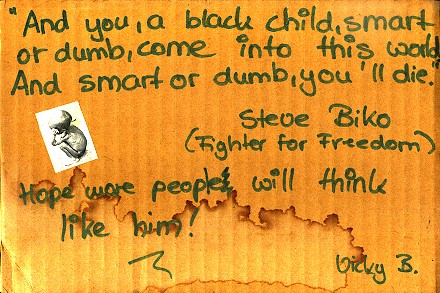 "And you, a black child, smart
or dumb, come into this world
And smart or dumb, you'll die."
Steve Biko
(Fighter for Freedom)
Hope more people will think
like him!
Vicky B.